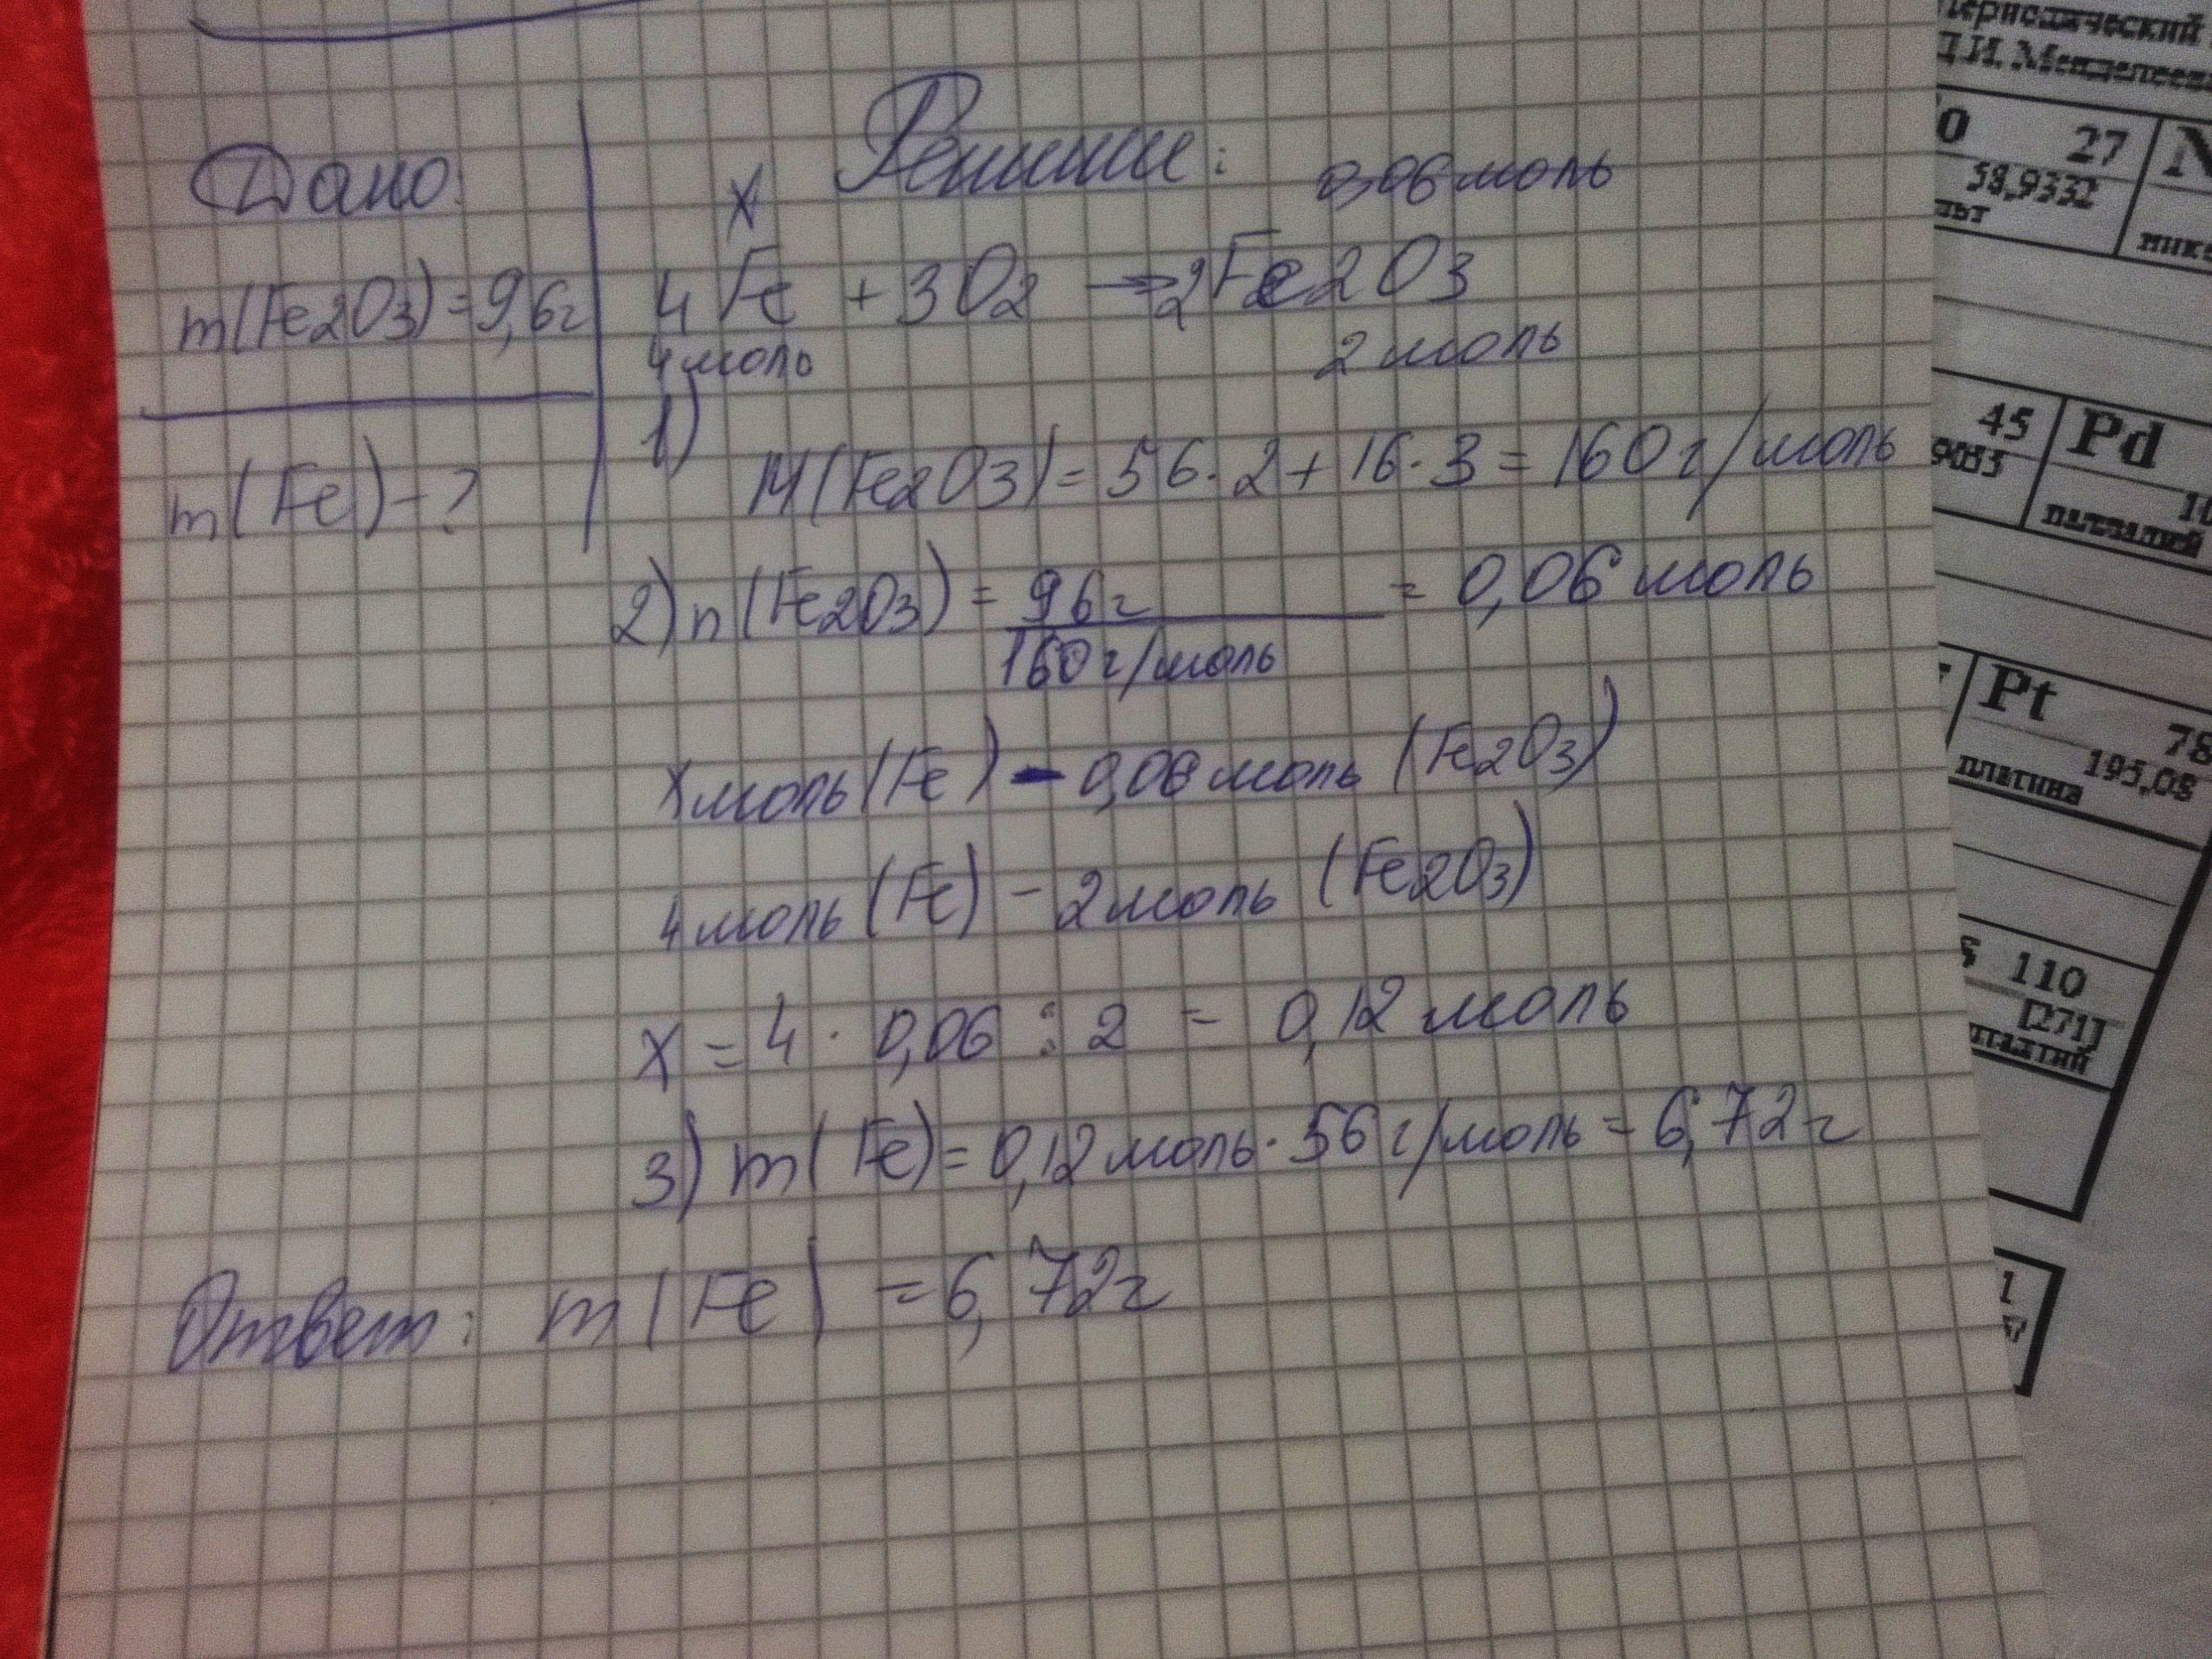 Дано:
Решение:
x
0,06 моль
m(Fe2O3) = 9,6г
4Fe + 3O2 → 2Fe2O3
4 моль
2 моль
m(Fe) - ?
1)
M(Fe2O3) = 56 · 2 + 16 · 3 = 160 г/моль
2) n(Fe2O3) = 9,6г / 160 г/моль = 0,06 моль
x моль (Fe) - 0,06 моль (Fe2O3)
4 моль (Fe) - 2 моль (Fe2O3)
x = 4 · 0,06 : 2 = 0,12 моль
3) m(Fe) = 0,12 моль · 56 г/моль = 6,72г
Ответ: m(Fe) = 6,72г
Периодический
Д.И. Менделеева
27
58,9332
45
Pd
палладий
Pt
78
195,08
платина
110
[271]
1